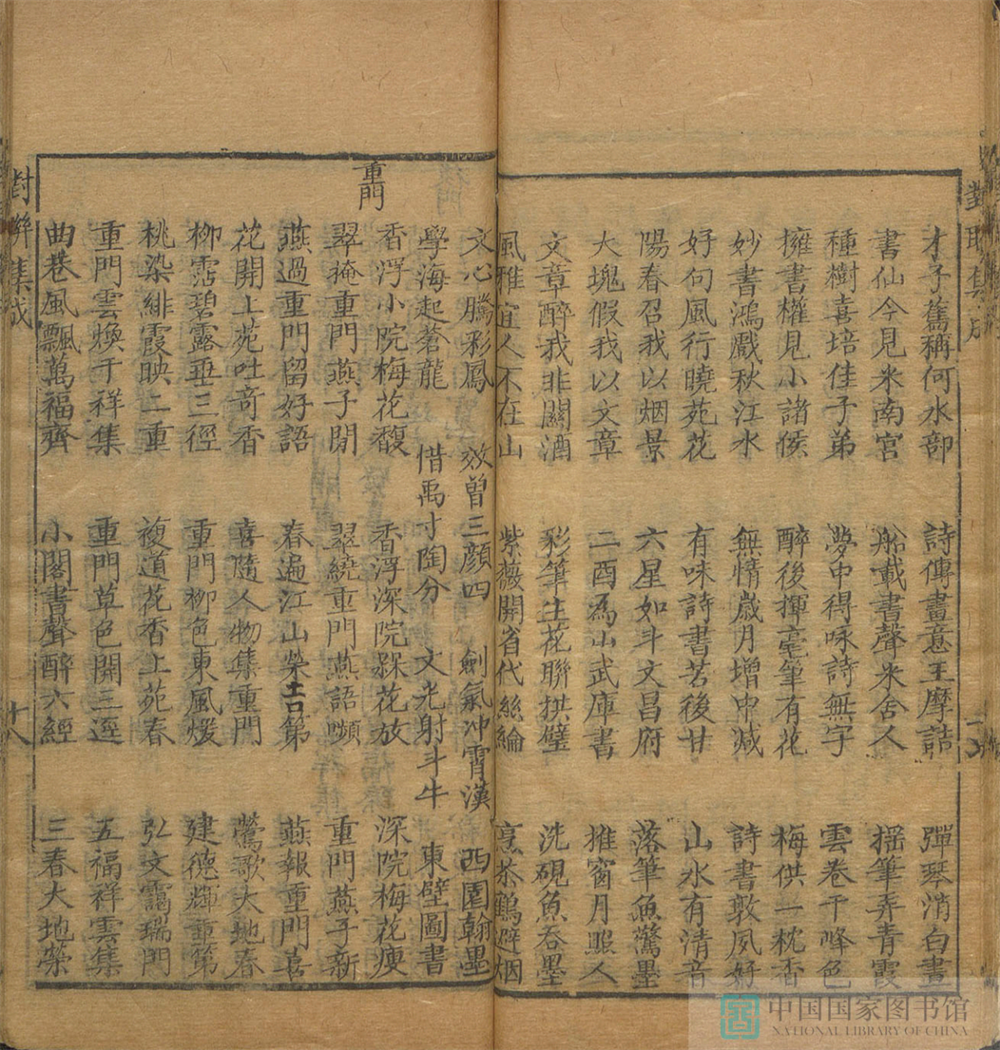 對聯集成
才子舊稱何水部 詩傳畫意王摩詰 彈琴消白晝
書仙今見米南宮 船載書聲米舍人 搖筆弄青霞
種樹喜培佳子弟 夢中得咏詩無字 雲卷千峰色
擁書權見小諸侯 醉後揮毫筆有花 梅供一枕香
妙書鴻戲秋江水 無情歲月增中减 詩書敦夙好
好句風行曉苑花 有味詩書苦後甘 山水有清音
陽春召我以烟景 六星如斗文昌府 落筆魚驚墨
大塊假我以文章 二酉為山武庫書 推窗月照人
文章醉我非關酒 彩筆生花聯拱璧 洗硯魚吞墨
風雅宜人不在山 紫薇開省代絲綸 烹茶鶴避烟
文心騰彩鳳 效曾三顏四 劍氣冲霄漢 西園翰墨
學海起蒼龍 惜禹寸陶分 文光射斗牛 東壁圖書
重門
香浮小院梅花馥 香浮深院躱花放 深院梅花瘦
翠掩重門燕子閒 翠繞重門燕語嚬 重門燕子新
燕過重門留好語 春遍江山榮吉第 燕報重門喜
花開上苑吐奇香 喜隨人物集重門 鶯歌大地春
柳霑碧露垂三徑 重門柳色東風煖 建德輝重第
桃染緋霞映二重 複道花香上苑春 弘文靄瑞門
重門雲煥千祥集 重門草色開三逕 五福祥雲集
曲巷風飄萬福齊 小閣書聲醉六經 三春大地榮
對聯集成
十八
中国国家图书馆
NATIONAL LIBRARY OF CHINA